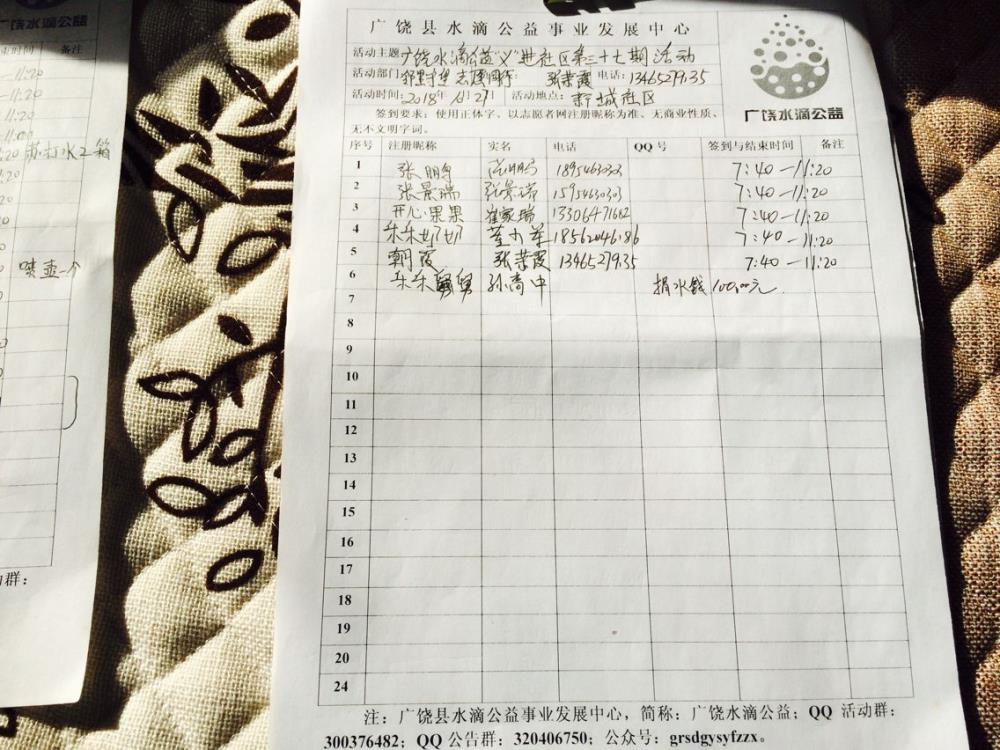 广饶水滴公益
束时间 备注
—11:20
—11:20
—11:20
11:00
:20 苏打水2箱
喷壶一个
广饶县水滴公益事业发展中心
广饶水滴公益
活动主题 广饶水滴公益"义"进社区第三十七期活动
活动部门 张荣霞 电话:13465279135
活动时间: 2018年 活动地点: 新城社区
签到要求:使用正体字、以志愿者网注册昵称为准、无商业性质、
无不文明字词。
序号 注册昵称 实名 电话 QQ号 签到与结束时间 备注
1 张鹏 18954630303 7:40—11:20
2 张景瑞 张景瑞 15954630303 7:40—11:20
3 开心果果 崔家瑞 13306471682 7:40—11:20
4 乐乐奶奶 董 18562046186 7:40—11:20
5 朝霞 张荣霞 13465279135 7:40—11:20
6 乐乐舅舅 孙 中 捐水钱100.00元
7
8
9
10
11
12
13
14
15
16
17
18
19
20
24
注:广饶县水滴公益事业发展中心,简称:广饶水滴公益;QQ 活动群:
300376482;QQ 公告群:320406750;公众号:grsdgysyfzzx。
群: